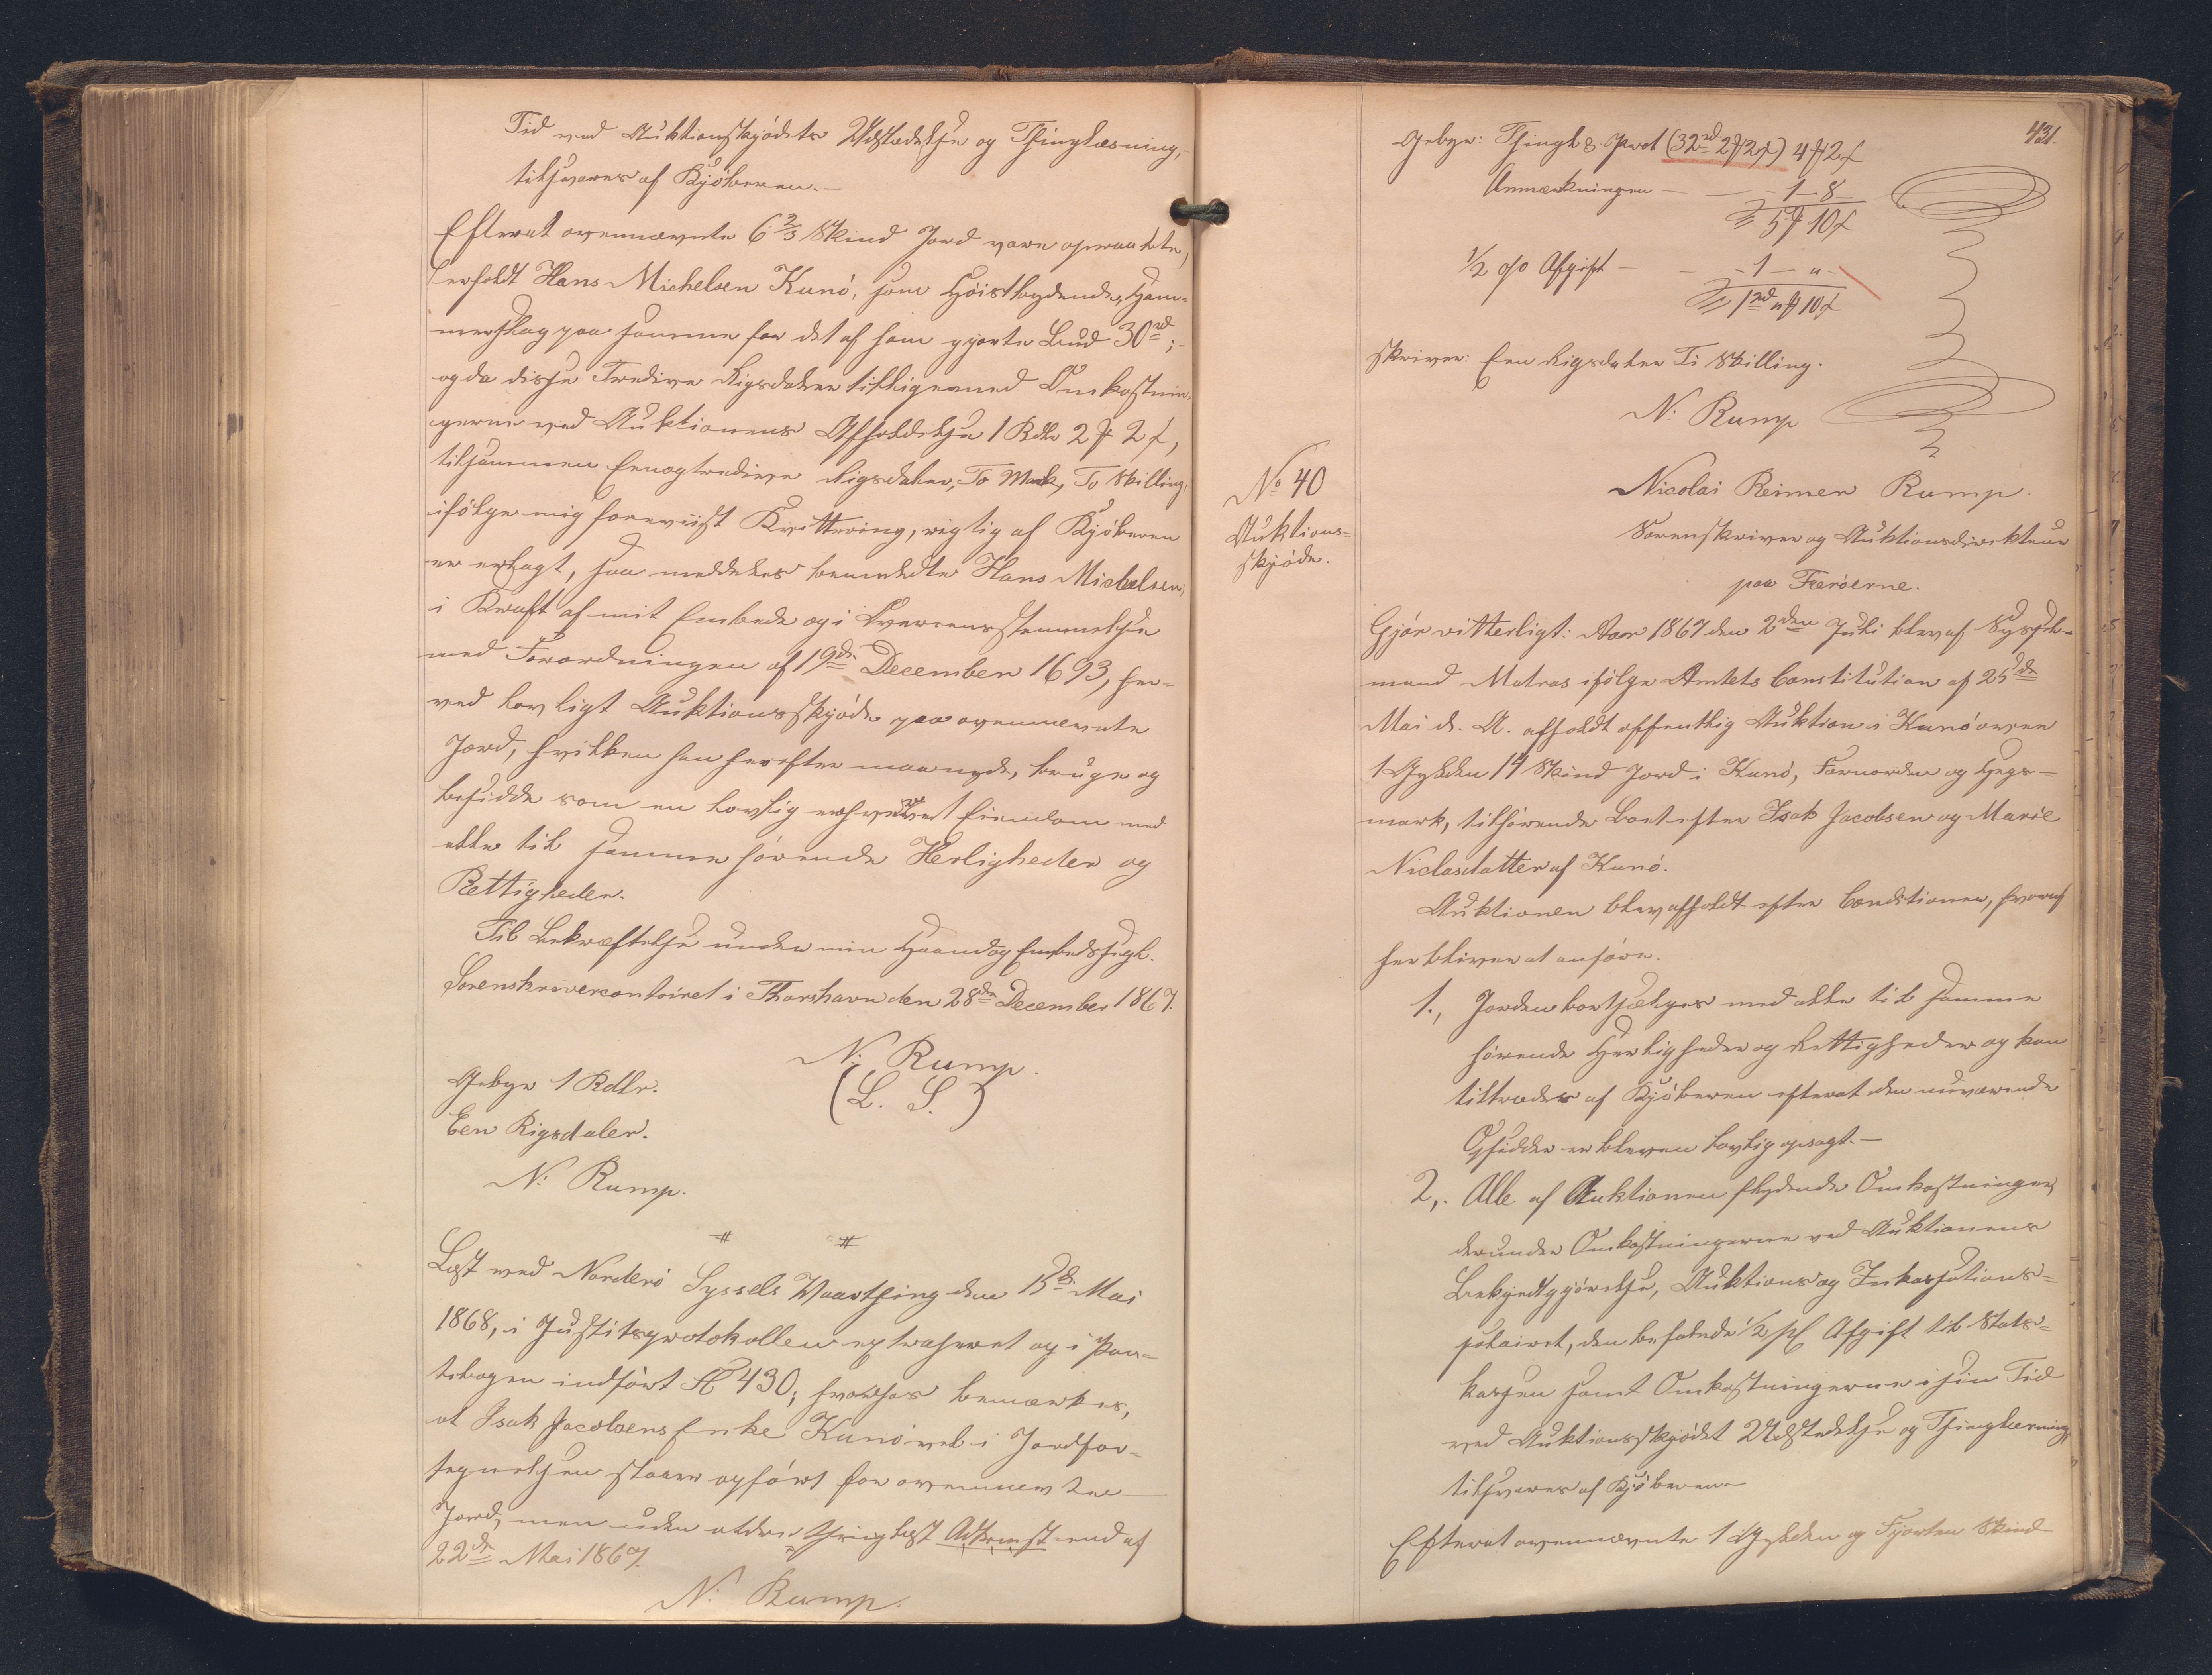 Tid ved Auktionsskjødets Udstædelse og Thinglæsning,
tilsvares af Kjøberen.—
Efterat ovennævnte 6 2/3 Skind Jord vare opraabte,
erholdt Hans Michelsen Kunø, som Høistbydende, Ham-
merslag paa samme for det af ham gjorte Bud 30 rd;-
og da disse Tredive Rigsdaler tilligemed Omkostnin-
gerne ved Auktionens Affholdelse 1 Rdlr 2 ꝟ 2 ß,
tilsammen Eenogtredive Rigsdaler, To Mark, To Skilling,
ifölge mig foreviist Kvittering, rigtig af Kjøberen
er erlagt, saa meddeles bemeldte Hans Michelsen,
i Kraft af mit Embede og i Overeensstemmelse
med Forordningen af 19de December 1693, her-
ved lovligt Auktionsskjøde paa ovennævnte
Jord, hvilken han herefter maa nyde, bruge og
besidde som en lovlig erhvervet Eiendom med
alle til samme hørende Herligheder og
Rettigheder.
Til Bekræftelse under min Haand og Embedssegl.
Sorenskrivercontoiret i Thorshavn den 28de December 1867.
N. Rump.
(L. S.)
Gebyr 1 Rdlr.
Een Rigsdaler.
N. Rump.
# #
Læst ved Norderø Syssels Vaarthing den 15de Mai
1868, i Justitsprotokollen extraheret og i Pan-
tebogen indført Fol 430; hvorhos bemærkes,
at Isak Jacobsens Enke Kunø vel i Jordfor-
tegnelsen staaer opført for ovennævnte
Jord, men uden ældre thinglæst Adkomst end af
22de Mai 1867.
N. Rump.
431.
Gebyr: Thingl & Prot (32rd 2ꝟ 2ß) 4 ꝟ 2 ß
Anmærkningen — — 1 - 8 —
5 ꝟ 10 ß
1/2 o/o Afgift — - 1 — " -
1 rd " ꝟ 10 ß
skriver: Een Rigsdaler Ti Skilling.
N. Rump
No 40
Auktions-
skjøde.
Nicolai Reimer Rump.
Sorenskriver og Auktionsdirekteur
paa Færøerne.
Gjør vitterligt: Aar 1867 den 2den Juli blev af Syssel-
mand Matras ifölge Amtets Constitution af 25de
Mai d. A. afholdt offentlig Auktion i Kunø over
1 Gylden 14 Skind Jord i Kunø, Fornorden og Hegs-
mark, tilhørende Boet efter Isak Jacobsen og Marie
Niclasdatter af Kunø.
Auktionen blev affholdt efter Conditioner, hvoraf
her bliver at anføre.
1., Jorden bortsælges med alle til samme
hørende Herligheder og Rettigheder og kan
tiltrædes af Kjøberen efterat den nuværende
Opsidder er bleven lovlig opsagt.—
2,. Alle af Auktionen flydende Omkostninger,
derunder Omkostningerne ved Auktionens
Bekjendtgjørelse, Auktions og Inkassations-
salairet, den befalede 1/2 pC Afgift til Stats-
kassen samt Omkostningerne i sin Tid
ved Auktionsskjødet Udstedelse og Thinglæsning,
tilsvares af Kjøberen.—
Efterat ovennævnte 1 Gylden og Fjorten Skind